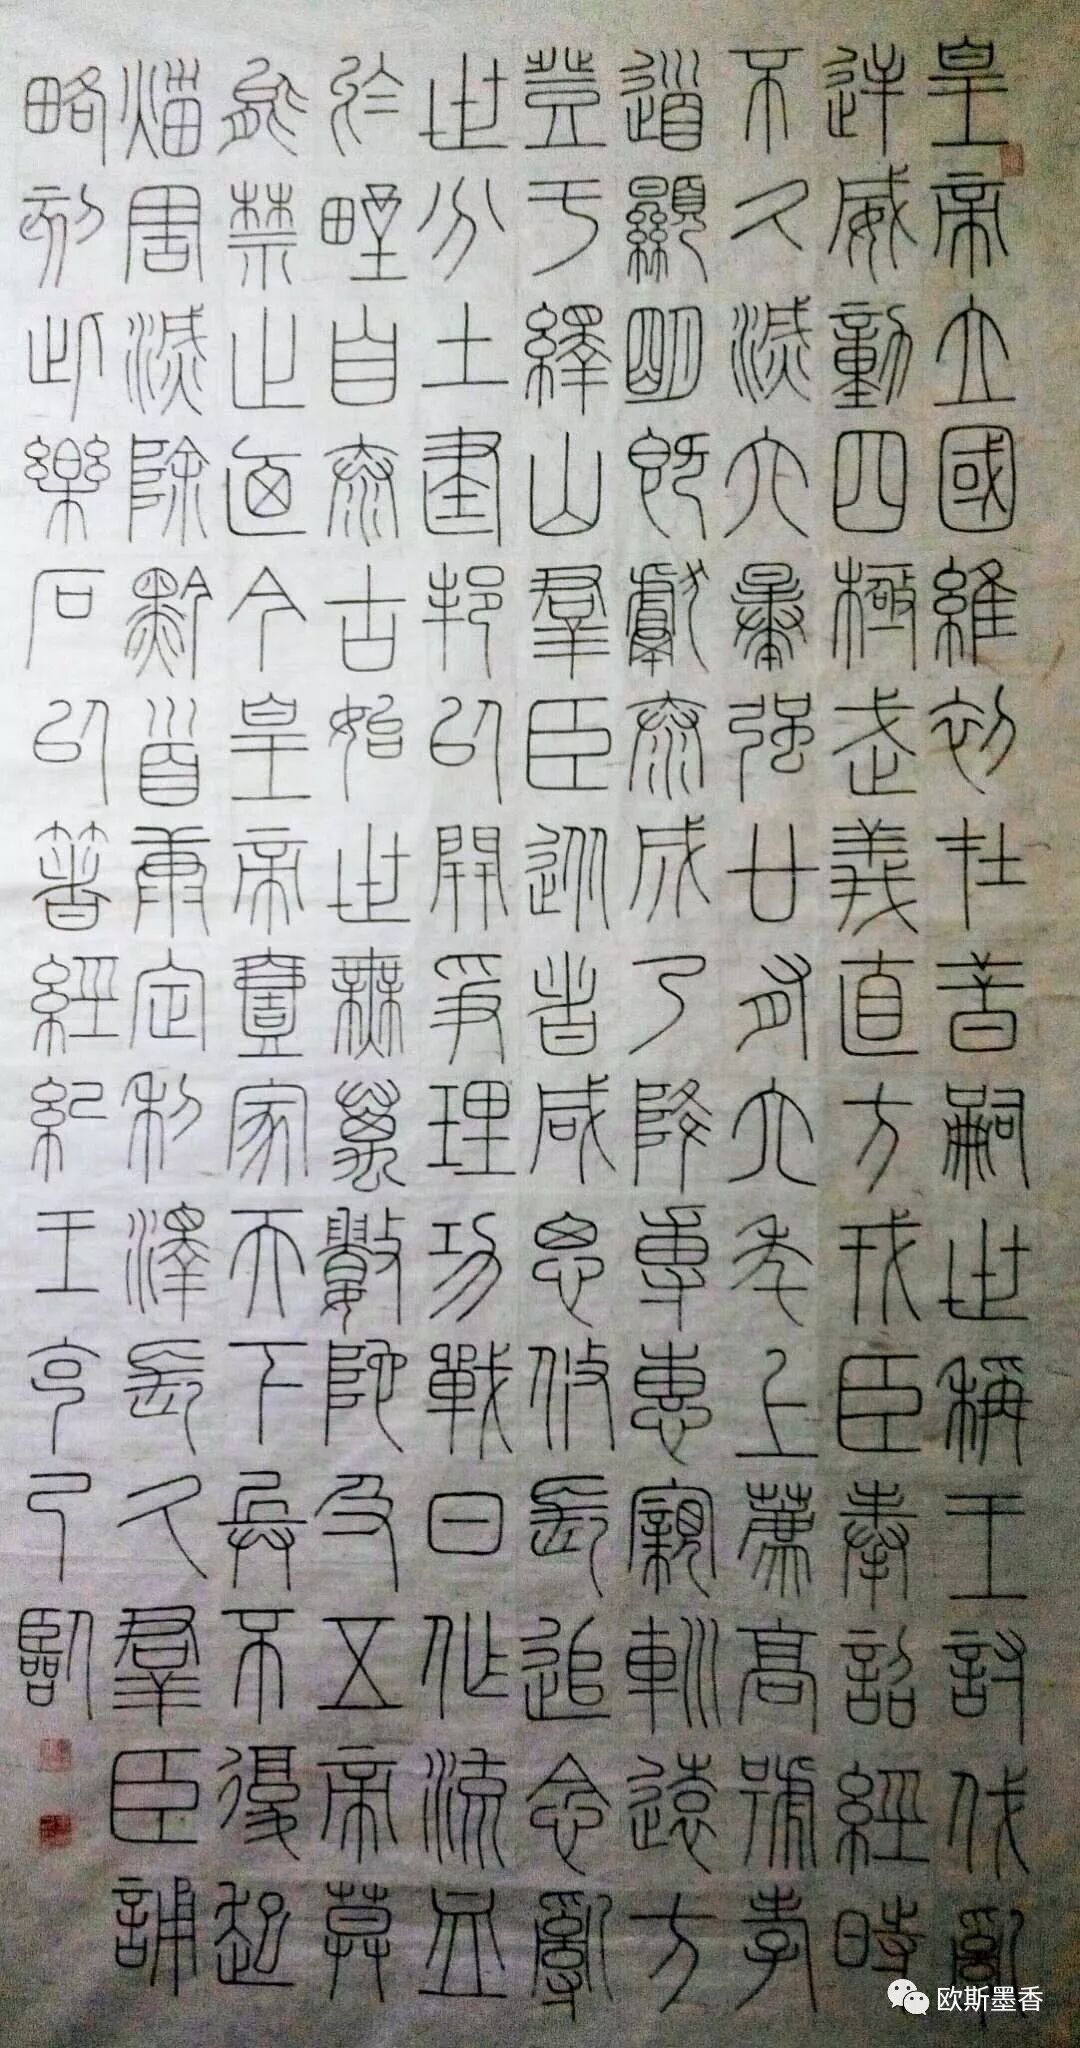 皇帝立國維初在昔嗣世稱王討伐亂
逆威動四極武義直方戎臣奉詔經時
不久滅六暴強廿有六年上薦高號孝
道顯明既獻泰成乃降專惠親䡅遠方
登于繹山羣臣從者咸思攸長追念亂
世分土建邦以開爭理功戰日作流血
於野自泰古始世無萬數陀及五帝莫
能禁止迺今皇帝壹家天下兵不復起
災害滅除黔首康定利澤長久羣臣誦
略刻此樂石以著經紀王亨乃臨
欧斯墨香